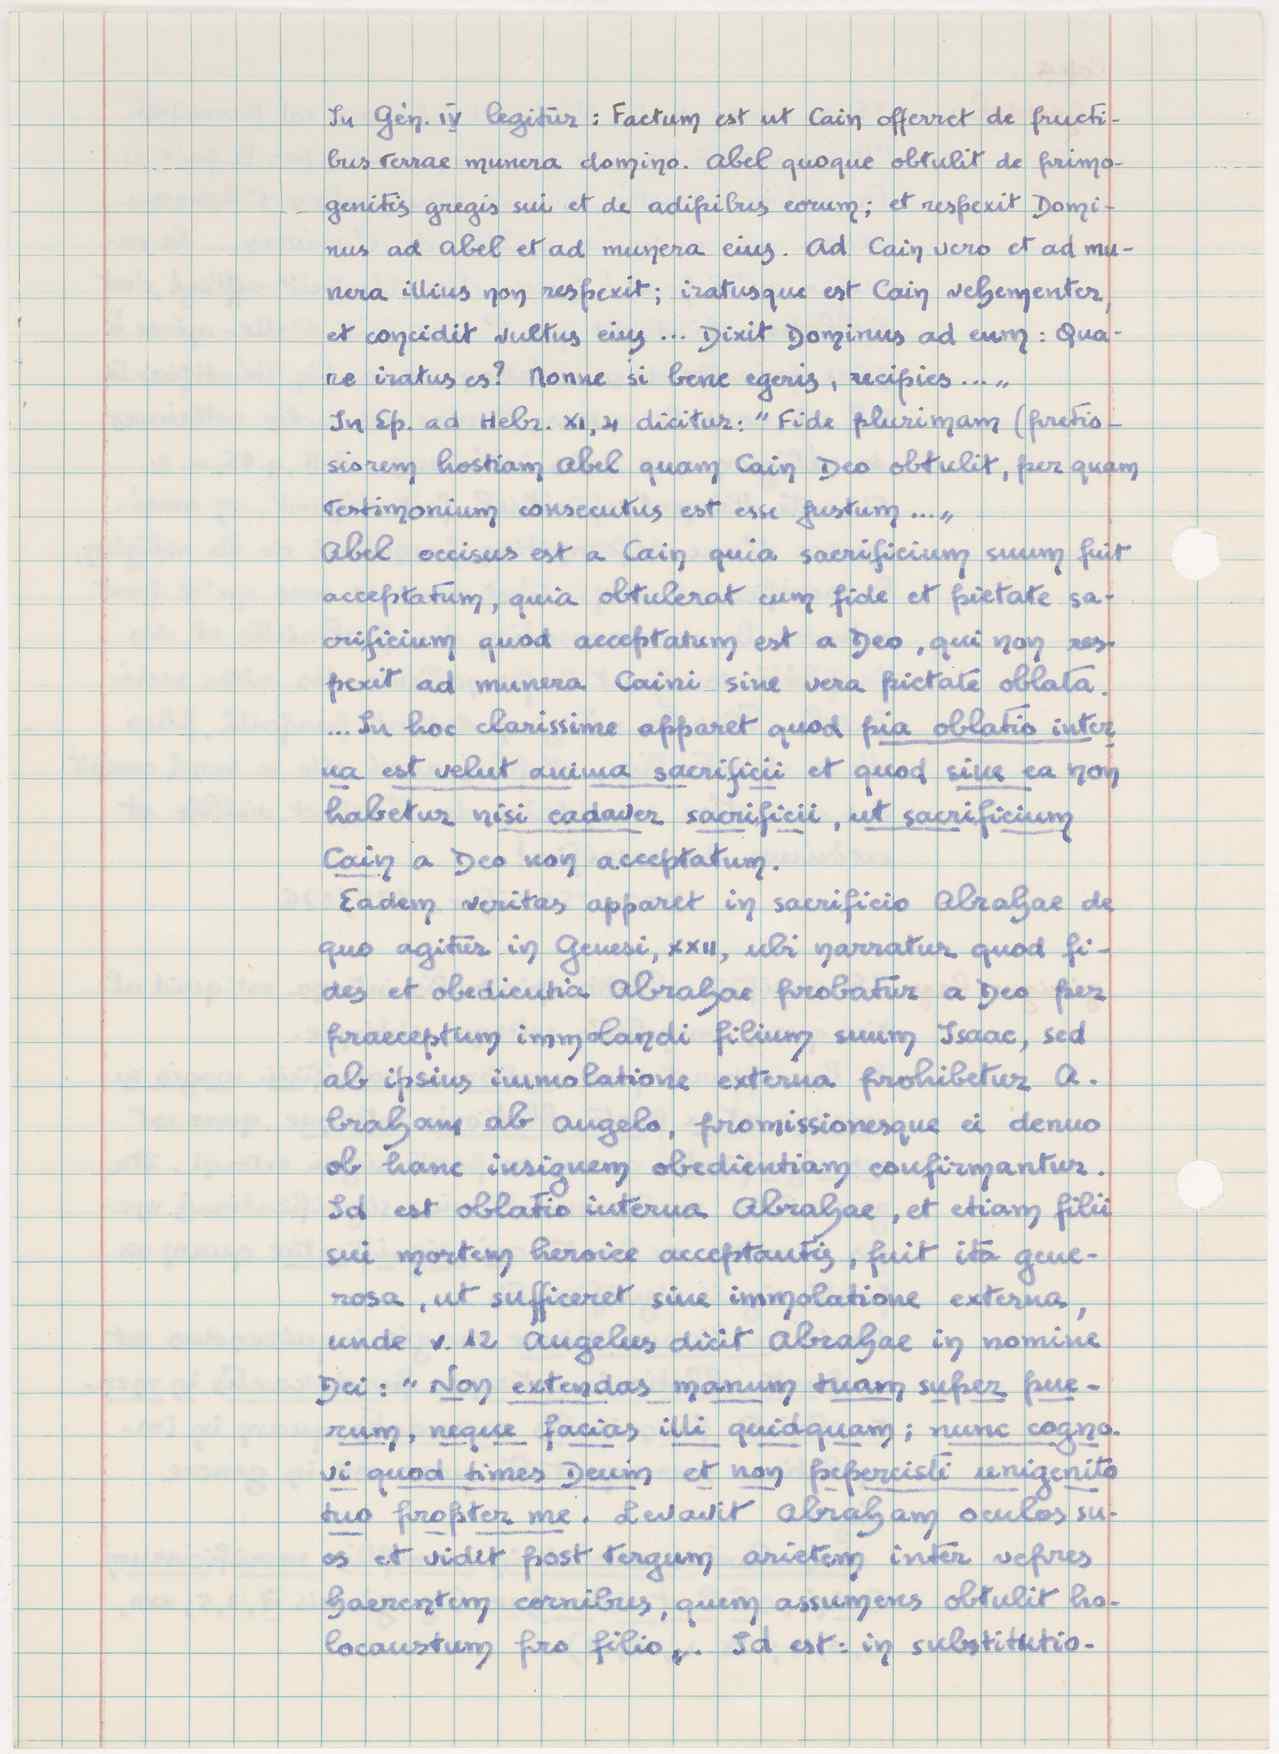 In Gén. IV legitur : Factum est ut Cain offerret de fructi-
bus terrae munera domino. Abel quoque obtulit de primo-
genitis gregis sui et de adipibus eorum; et respexit Domi-
nus ad Abel et ad munera eius. Ad Cain vero et ad mu-
nera illius non respexit; iratusque est Cain vehementer,
et concidit vultus eius ... Dixit Dominus ad eum : Qua-
re iratus es? Nonne si bene egeris, recipies ... „
In Ep. ad Hebr. XI, 4 dicitur: “ Fide plurimam (pretio-
siorem hostiam Abel quam Cain Deo obtulit, per quam
testimonium consecutus est esse justum ... „
Abel occisus est a Cain quia sacrificium suum fuit
acceptatum, quia obtulerat cum fide et pietate sa-
crificium quod acceptatum est a Deo, qui non res-
pexit ad munera Caini sine vera pietate oblata.
... In hoc clarissime apparet quod pia oblatio inter
na est velut anima sacrificii et quod sine ea non
habetur nisi cadaver sacrificii, ut sacrificium
Cain a Deo non acceptatum.
Eadem veritas apparet in sacrificio Abrahae de
quo agitur in Genesi, XXII, ubi narratur quod fi-
des et obedientia Abrahae probatur a Deo per
praeceptum immolandi filium suum Isaac, sed
ab ipsius immolatione externa prohibetur A-
braham ab angelo, promissionesque ei denuo
ob hanc insignem obedientiam confirmantur.
Id est oblatio interna Abrahae, et etiam filii
sui mortem heroice acceptantis, fuit ita gene-
rosa, ut sufficeret sine immolatione externa,
unde v. 12 Angelus dicit Abrahae in nomine
Dei : “ Non extendas manum tuam super pue-
rum, neque facias illi quidquam; nunc cogno-
vi quod times Deum et non pepercisti unigenito
tuo propter me. Levavit Abraham oculos su-
os et vidit post tergum arietem inter vepres
haerentem cornibus, quem assumens obtulit ho-
locaustum pro filio „. Id est : in substitutio-